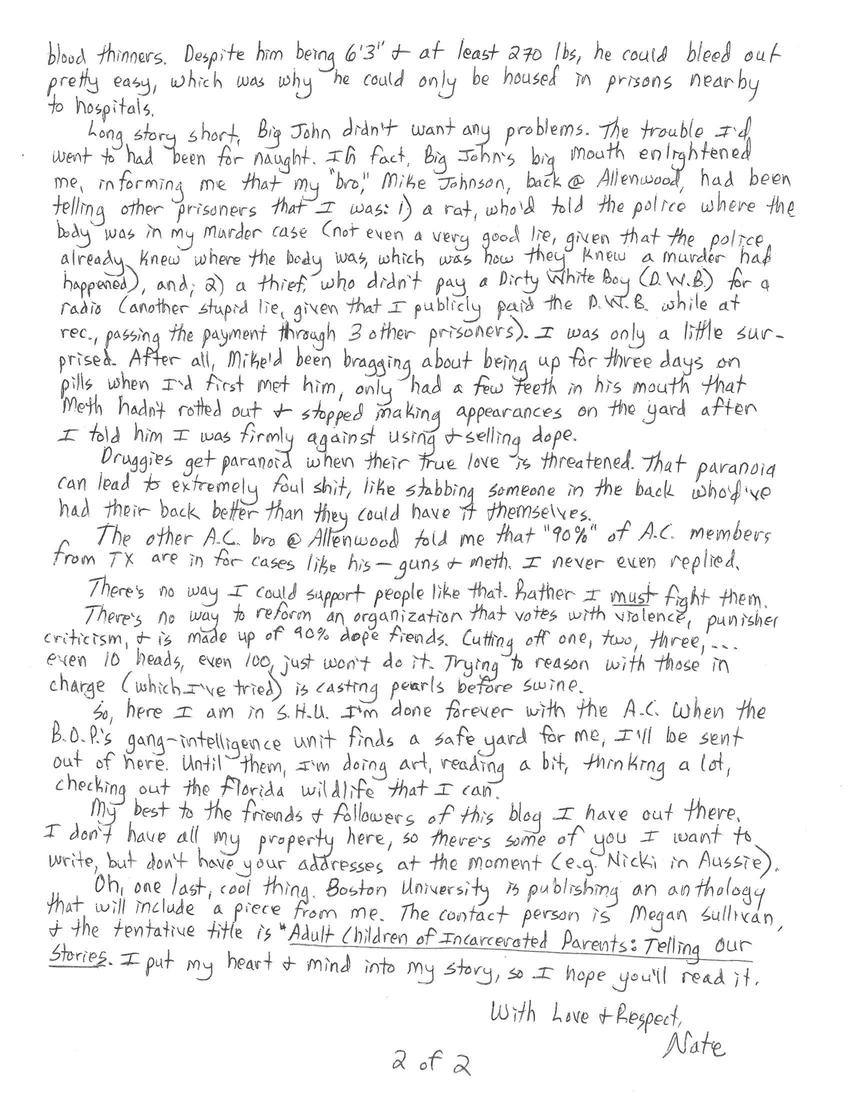 blood thinners. Despite him being 6'3" + at least 270 lbs, he could bleed out
pretty easy, which was why he could only be housed in prisons nearby
to hospitals.
Long story short, Big John didn't want any problems. The trouble I'd
went to had been for naught. In fact, Big John's big mouth enlightened
me, informing me that my "bro," Mike Johnson, back @ Allenwood, had been
telling other prisoners that I was: 1) a rat, who'd told the police where the
body was in my murder case (not even a very good lie, given that the police
already knew where the body was, which was how they knew a murder had
happened), and; 2) a thief, who didn't pay a Dirty White Boy (D.W.B.) for a
radio (another stupid lie, given that I publicly paid the D.W.B. while at
rec., passing the payment through 3 other prisoners). I was only a little sur-
prised. After all, Mike'd been bragging about being up for three days on
pills when I'd first met him, only had a few teeth in his mouth that
Meth hadn't rotted out + stopped making appearances on the yard after
I told him I was firmly against using + selling dope.
Druggies get paranoid when their true love is threatened. That paranoia
can lead to extremely foul shit, like stabbing someone in the back who'd've
had their back better than they could have it themselves.
The other A.C. bro @ Allenwood told me that "90%" of A.C. members
from TX are in for cases like his — guns + meth. I never even replied.
There's no way I could support people like that. Rather I must fight them.
There's no way to reform an organization that votes with violence, punishes
criticism, + is made up of 90% dope fiends. Cutting off one, two, three,...
even 10 heads, even 100, just won't do it. Trying to reason with those in
charge (which I've tried) is casting pearls before swine.
So, here I am in S.H.U. I'm done forever with the A.C. When the
B.O.P.'s gang-intelligence unit finds a safe yard for me, I'll be sent
out of here. Until them, I'm doing art, reading a bit, thinking a lot,
checking out the Florida wildlife that I can.
My best to the friends + followers of this blog I have out there.
I don't have all my property here, so there's some of you I want to
write, but don't have your addresses at the moment (e.g. Nicki in Aussie).
Oh, one last, cool thing. Boston University is publishing an anthology
that will include a piece from me. The contact person is Megan Sullivan,
+ the tentative title is "Adult Children of Incarcerated Parents: Telling Our
Stories. I put my heart + mind into my story, so I hope you'll read it.
With Love + Respect,
Nate
2 of 2